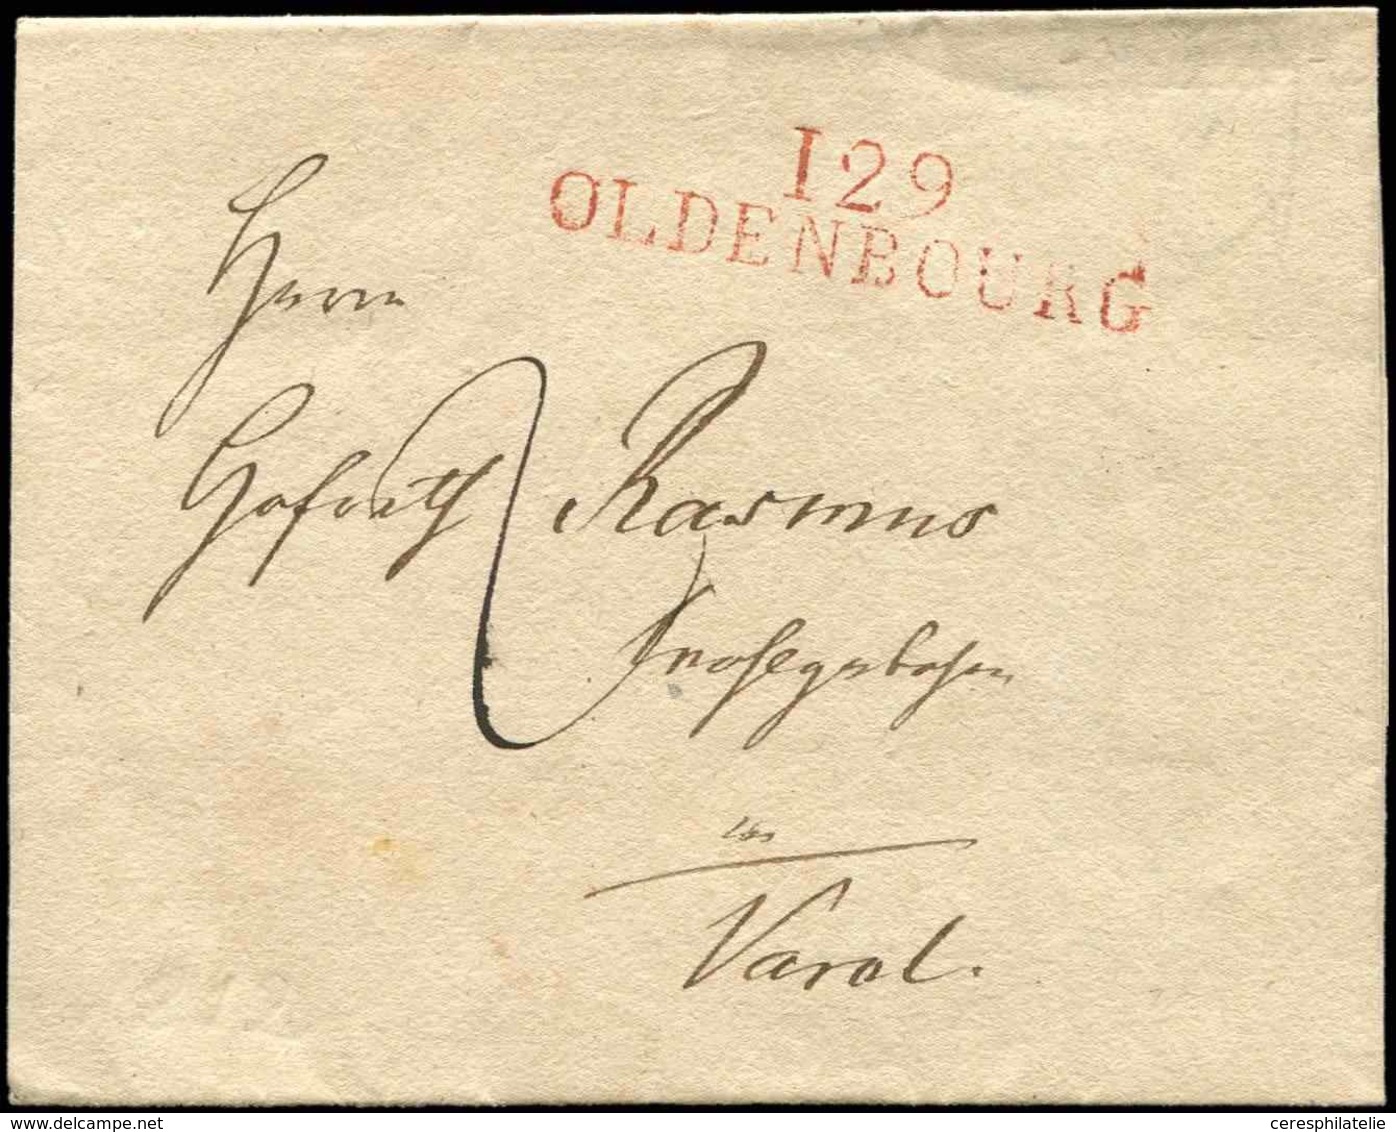 129
OLDENBOURG
Herrn
Hofrath Rasmus
in
Varel.
© delcampe.net
ceresphilatelie